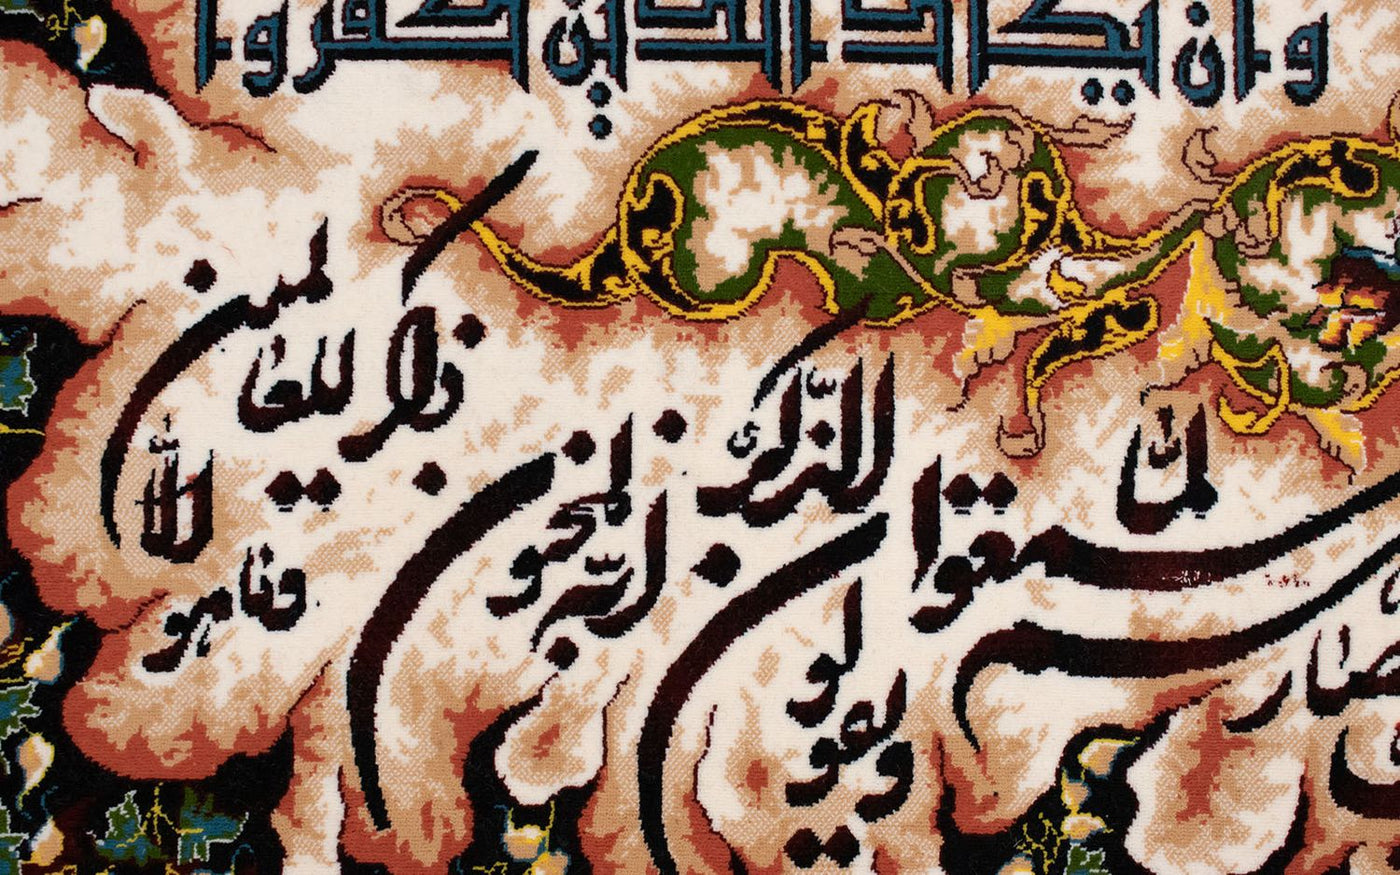 وان يكاد الذين كفروا
لمّا سمعوا الذّكر ويقولون انّه لمجنون وما هو الّا ذكر للعالمين